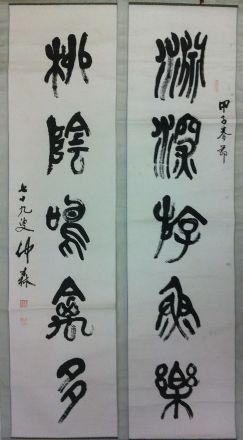 渊深游鱼樂
甲子春節
桃陰鳴禽多
七十九叟仲森